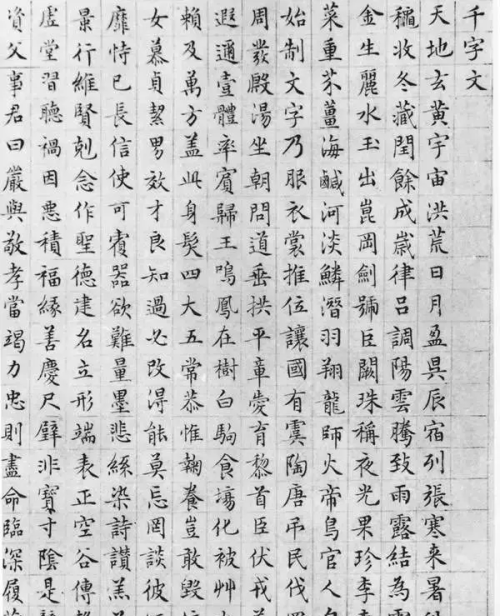 千字文
天地玄黃宇宙洪荒日月盈昃辰宿列張寒来暑
穐收冬藏閏餘成歲律呂調陽雲騰致雨露結為
金生麗水玉出崑岡劍號巨闕珠稱夜光果珍李
菜重芥薑海鹹河淡鱗潛羽翔龍師火帝鳥官人
始制文字乃服衣裳推位讓國有虞陶唐弔民伐
周發殷湯坐朝問道垂拱平章愛育黎首臣伏戎
遐邇壹體率賓歸王鳴鳳在樹白駒食場化被艸
賴及萬方盖此身髮四大五常恭惟鞠養豈敢毀
女慕貞潔男效才良知過必改得能莫忘罔談彼
靡恃己長信使可覆器欲難量墨悲絲染詩讚羔
景行維賢剋念作聖德建名立形端表正空谷傳
虛堂習聽禍因惡積福緣善慶尺璧非寶寸陰是
資父事君曰嚴與敬孝當竭力忠則盡命臨深履